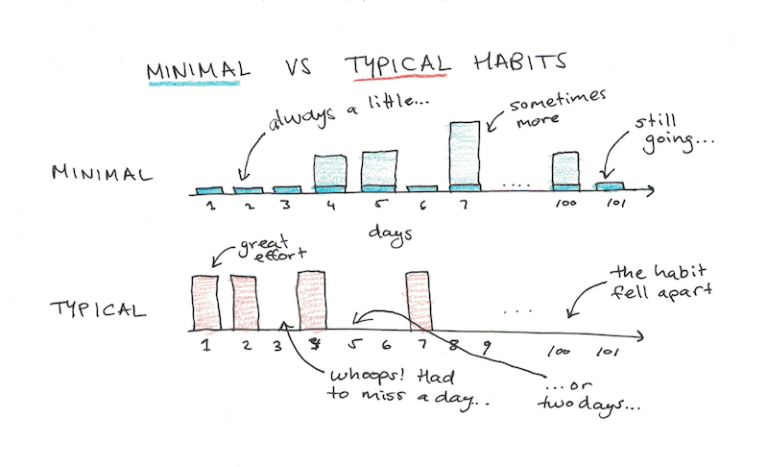 MINIMAL VS TYPICAL HABITS
always a little...
sometimes
more
still
going...
MINIMAL
1 2 3 4 5 6 7 .... 100 101
days
great
effort
the habit
fell apart
TYPICAL
...
1 2 3 4 5 6 7 8 9 100 101
whoops! Had
to miss a day..
...or
two days...